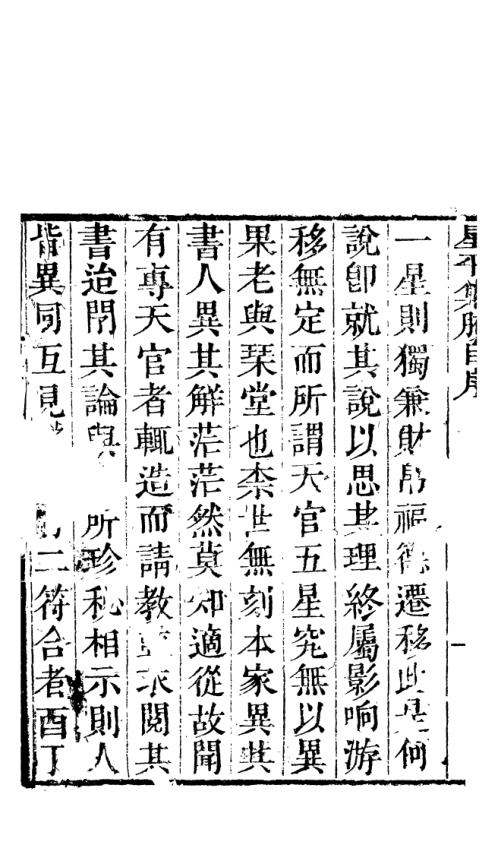 星平集腋自序
一星則獨兼財帛福德遷移此是何
說卽就其說以思其理終屬影响游
移無定而所謂天官五星究無以異
果老與琹堂也柰世無刻本家異其
書人異其解茫茫然莫知適從故聞
有專天官者輒造而請教求閱其
書迨閱其論所珍秘相示則人
皆異同互見一二符合者酉丁